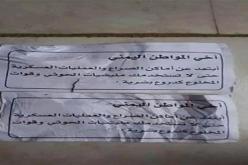 أخي المواطن اليمني
أبتعد عن أماكن الصراع والعمليات العسكرية
حتى لا تستخدمك مليشيات الحوثي وقوات
المخلوع كدروع بشرية
أخي المواطن اليمني
أبتعد عن أماكن الصراع والعمليات العسكرية
حتى لا تستخدمك مليشيات الحوثي وقوات
المخلوع كدروع بشرية